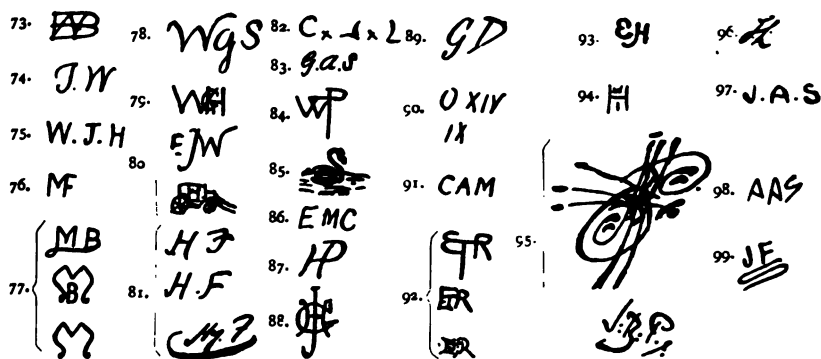 73. WB
74. J. W
75. W. J. H
76. MF
77. M B
M B
M
78. W g S
79. W H
80 E. J W
81. H F
H. F
Hy. F
82. C x x L
83. G. a. S
84. W P
85.
86. E M C
87. H P
88.
89. G D
90. O XIV
IX
91. CAM
92. E T R
E T R
E. R
93. E H
94. H
95.
96.
97. J. A. S
98. A A S
99. J F